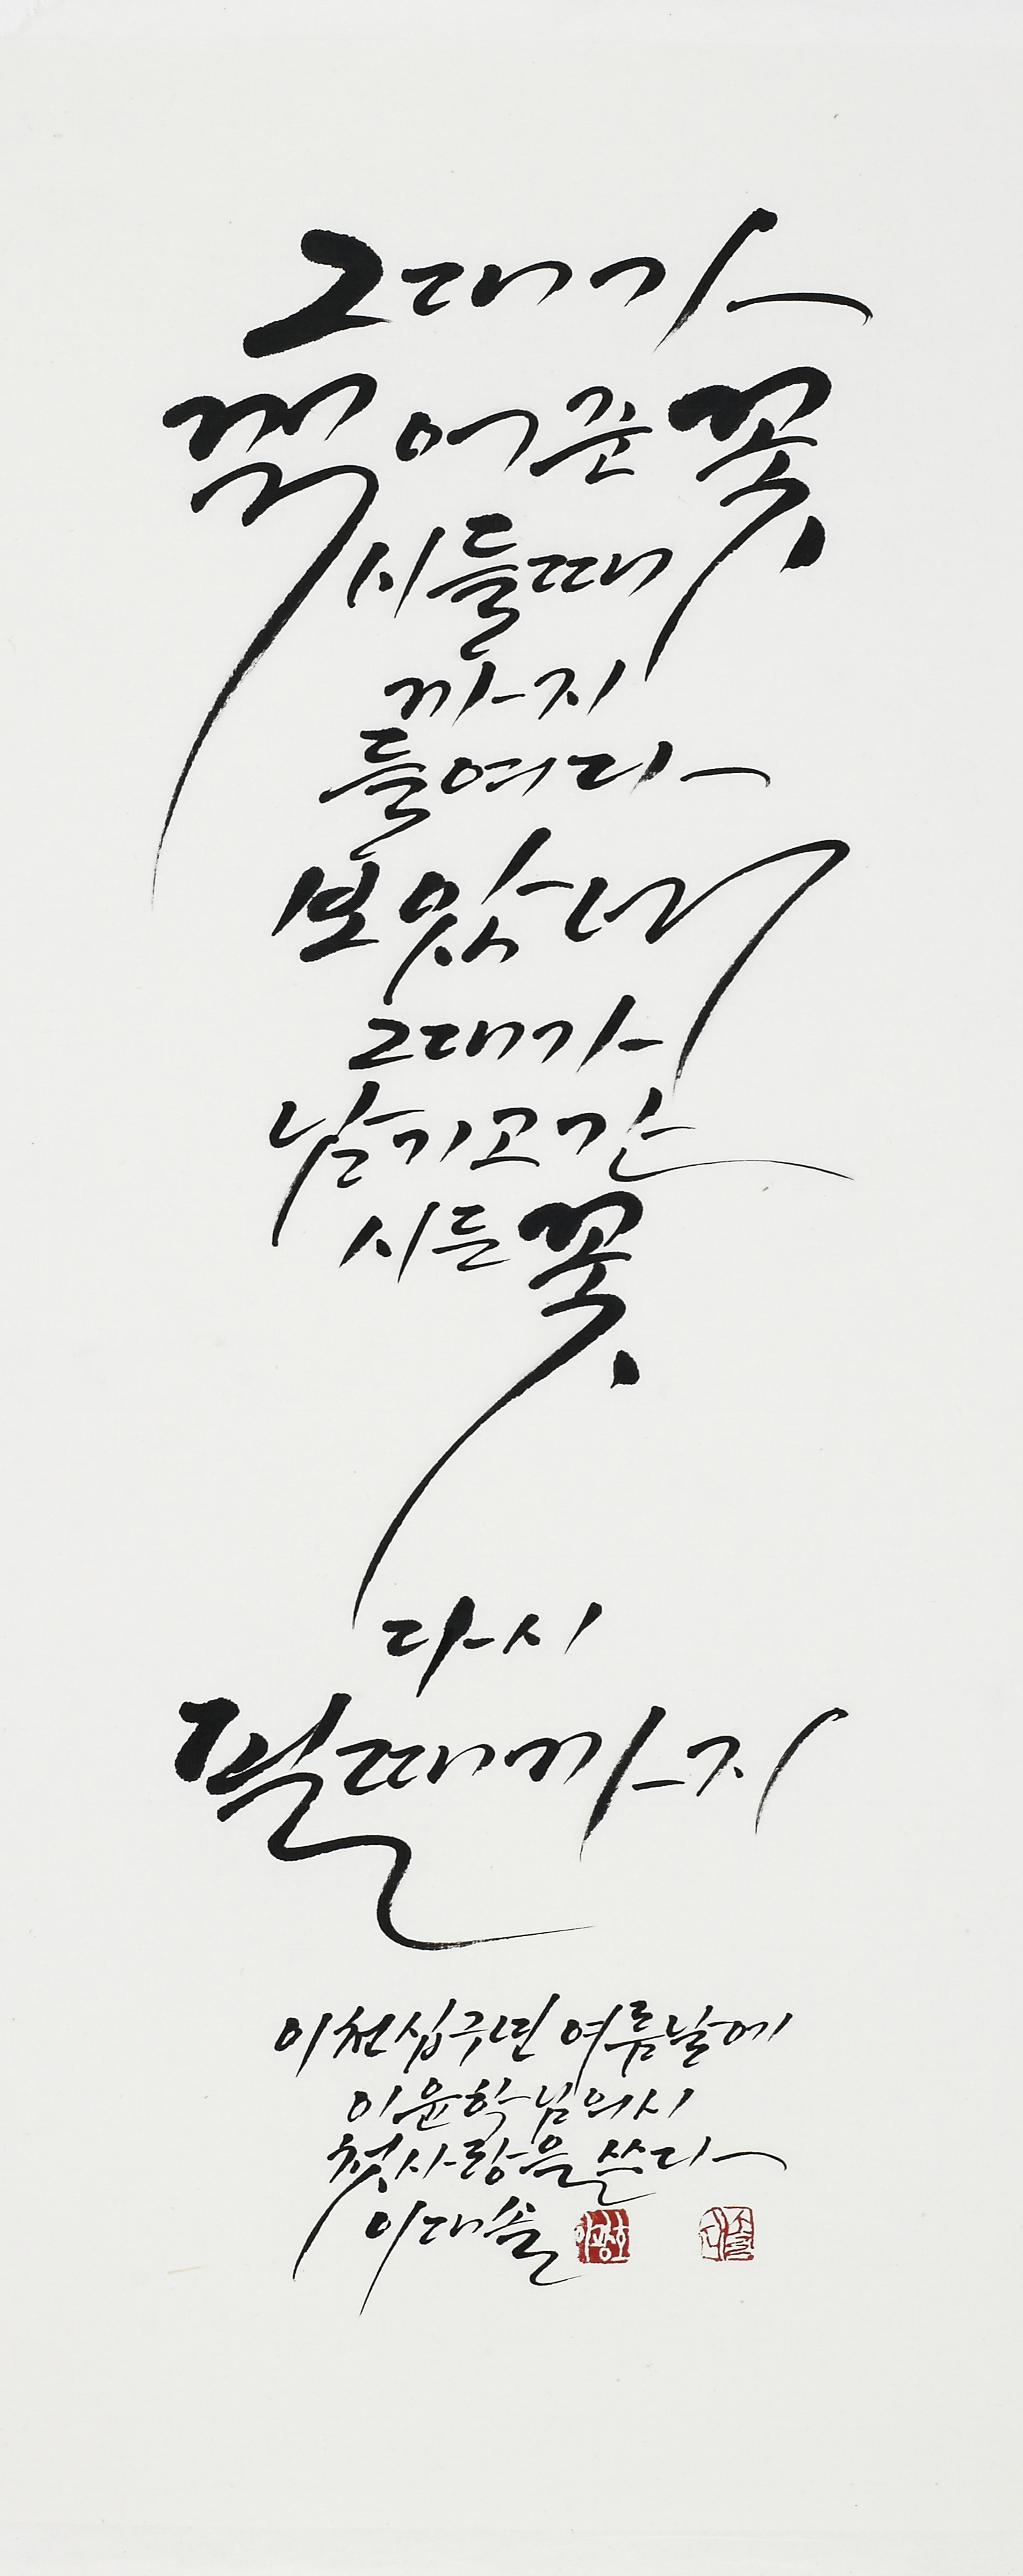 그대가
꺾어준 꽃
시들때
까지
들여다
보았네
그대가
남기고간
시든 꽃
다시
필때까지
이천십구년 여름날에
이윤학님의시
첫사랑을 쓴다
이대솔
이광호